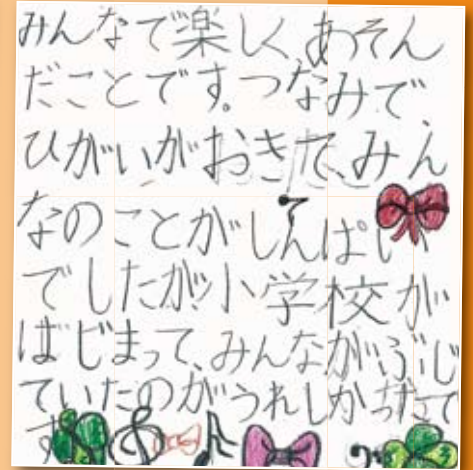 みんなで楽しく、あそん
だことです。つなみで、
ひがいがおきて、みん
なのことがしんぱい
でしたが小学校が
はじまって、みんながぶじ
でいたのがうれしかったで
す